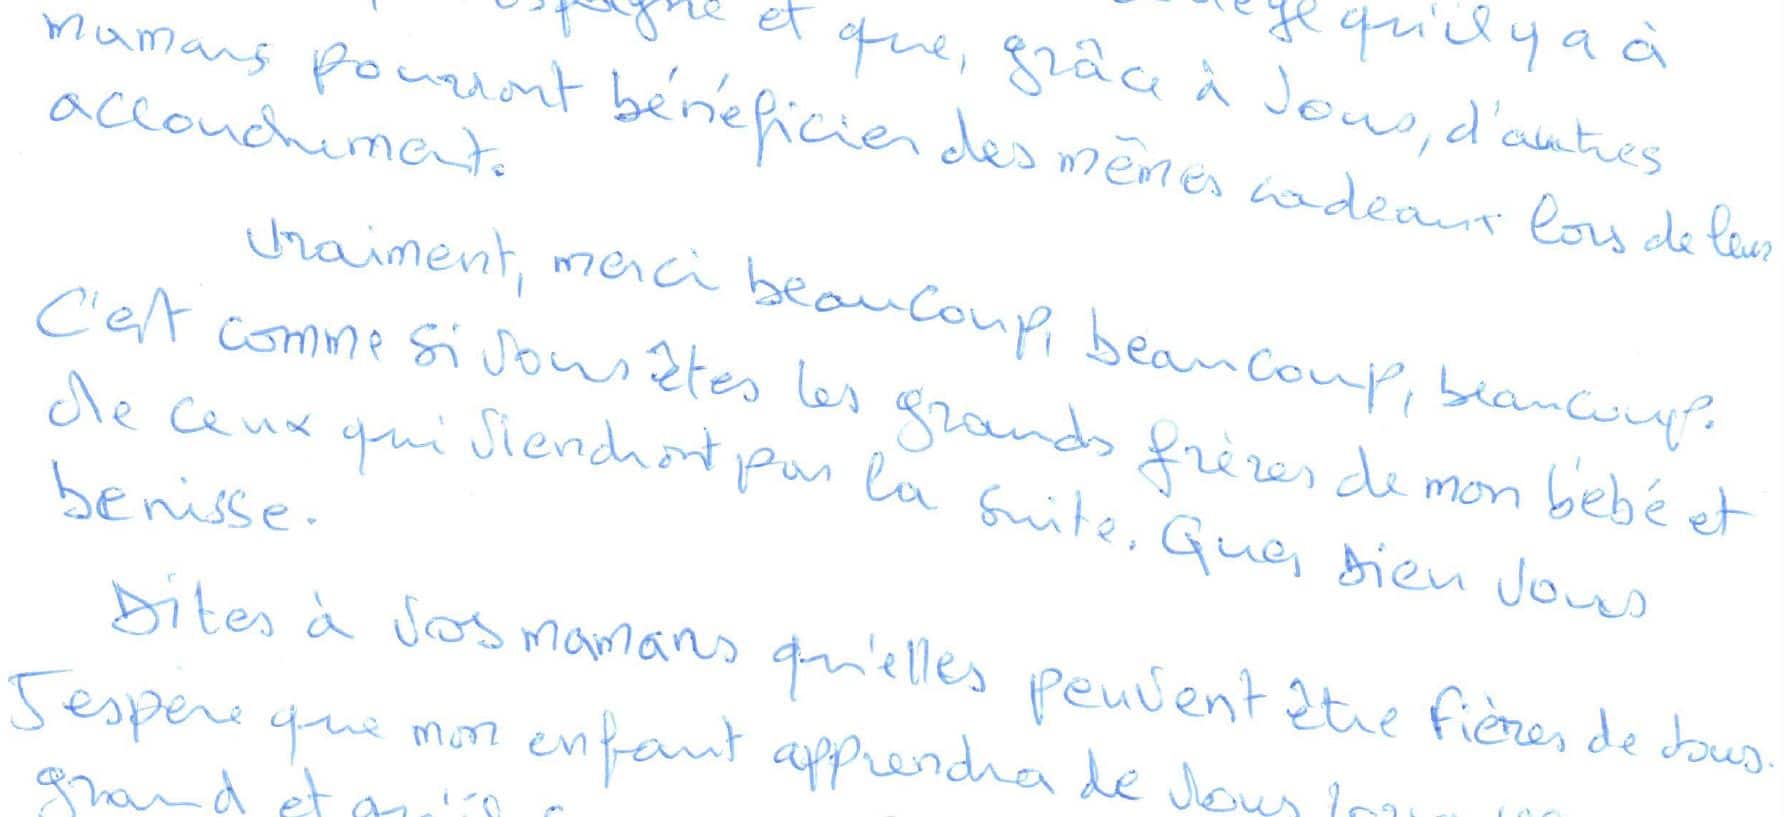 Espagne et que, grâce à vous, d'autres
mamans pourront bénéficier des mêmes cadeaux lors de leur
accouchement.
Vraiment, merci beaucoup, beaucoup, beaucoup.
C'est comme si vous êtes les grands frères de mon bébé et
de ceux qui viendront par la suite. Que Dieu vous
benisse.
Dites à vos mamans qu'elles peuvent être fières de vous.
J'espère que mon enfant apprendra de vous
grand et qu'il